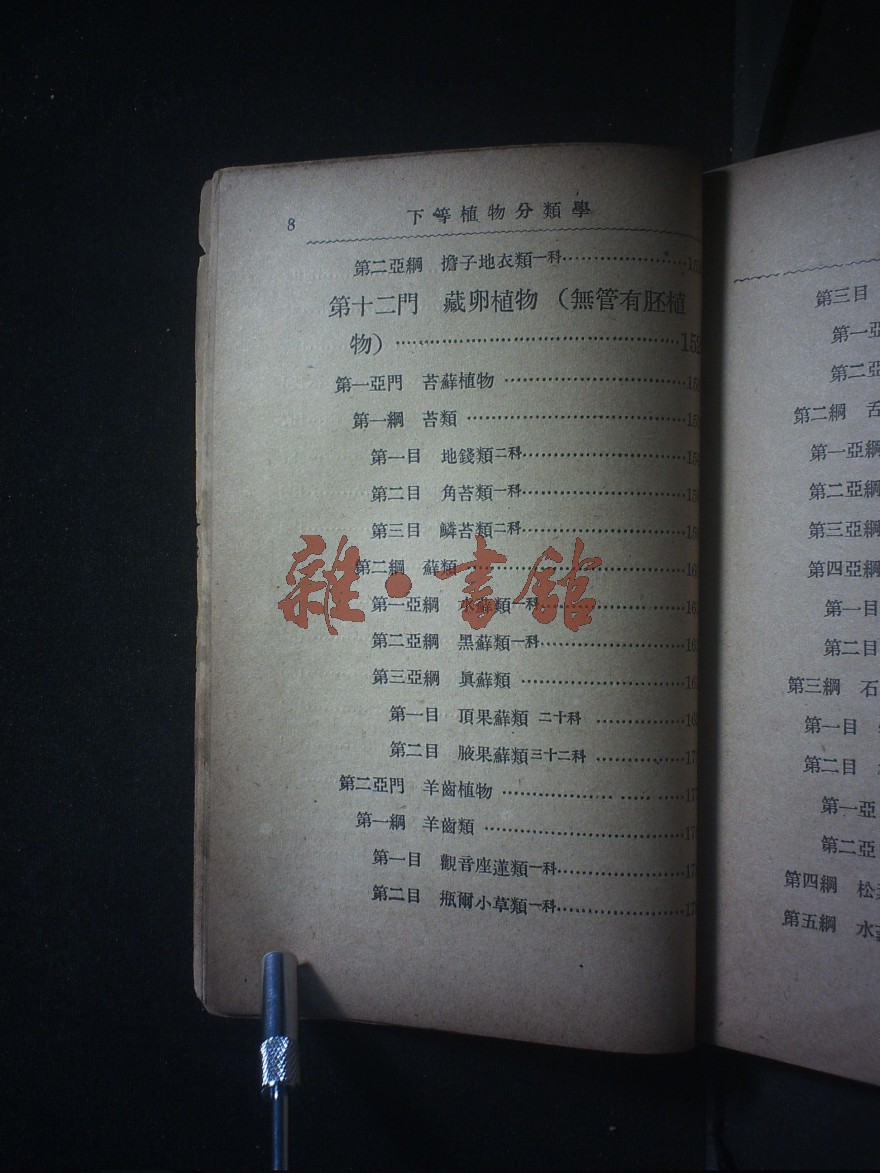 8
下等植物分類學
第二亞綱 擔子地衣類一科……………………15
第十二門 藏卵植物(無管有胚植
物)……………………………………152
第一亞門 苔蘚植物……………………15
第一綱 苔類……………………15
第一目 地錢類二科……………………15
第二目 角苔類一科……………………15
第三目 鱗苔類二科……………………15
第二綱 蘚類……………………16
第一亞綱 水蘚類一科……………………16
第二亞綱 黑蘚類一科……………………16
第三亞綱 眞蘚類……………………16
第一目 頂果蘚類 二十科……………16
第二目 腋果蘚類三十二科……………17
第二亞門 羊齒植物……………………17
第一綱 羊齒類……………………17
第一目 觀音座蓮類一科……………………17
第二目 瓶爾小草類一科……………………17
雜·書館
第三目
第一亞
第二亞
第二綱 舌
第一亞綱
第二亞綱
第三亞綱
第四亞綱
第一目
第二目
第三綱 石
第一目
第二目
第一亞
第二亞
第四綱 松葉
第五綱 水